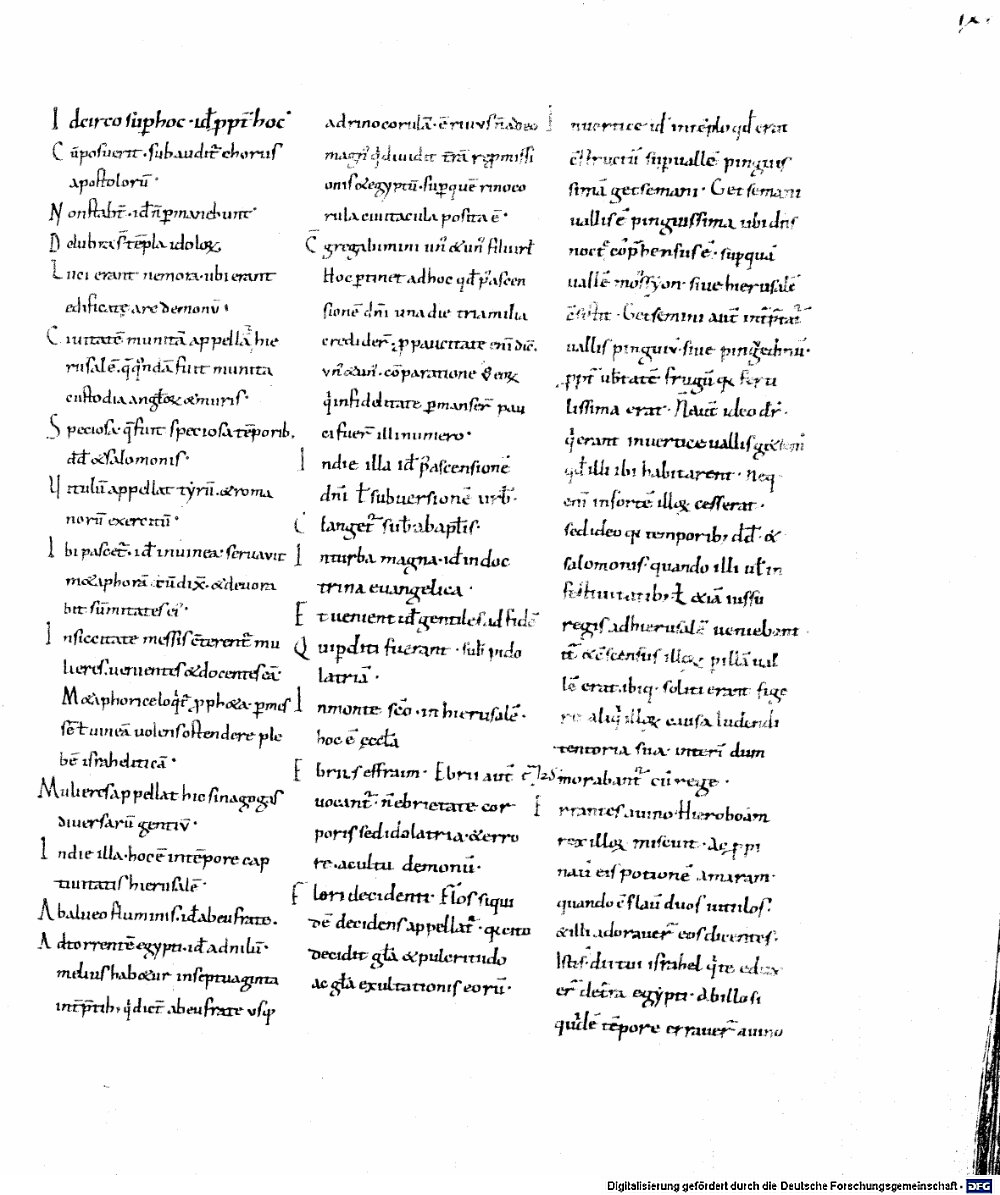 Idcirco sup hoc · id ppt hoc
C ūposuerit · subaudit chorus
apostolorū ·
Non stabt̄ · id n̄ pmanebunt
Delubra · s̄ tēpla idoloꝝ
Luci erant nemora · ubi erant
edificatę are demonū ·
Ciuitatē munitā appellat̄ hie
rusalē · q̄ q̄ndā fuit munita
custodia angloꝝ & muris ·
Speciosa · q̄ fuit speciosa tēporib ·
dd̄ & salomonis ·
Uitulū appellat tyrū · & roma
norū exercitū ·
Ibi pascet̄ · id in uinea · seruauit
m&aphorā · cū dix̄ · & deuora
bit sūmitates ei ·
In siccitate messis c̄terent̄ mu
lieres · uenientes & docentes eā ·
M&aphorice loq̄t̄ pph&a · p mes
sē t uineā uolens ostendere ple
bē israheliticā ·
Mulieres appellat hic sinagogas
diuersarū gentiū ·
In die illa · hoc ē in tēpore cap
tiuitatis hierusalē ·
Ab alueo fluminis · id ab eufrate ·
Ad torrentē egypti · id ad nilū ·
melius hab&ur in septuaginta
intp̄tib; q̄ dict̄ ab eufrate usq;
ad rinocorulā · ē riuus n̄ adeo
magn̄ q̄ diuidit t̄rā rep̄missi
onis & egyptū · sup quē rinoco
rula ciuitacula posita ē ·
Cgregabimini un̄ & un̄ filii isrl
Hoc ptinet ad hoc qd p̄ ascen
sionē dn̄i una die tria milia
credider̄ · p paucitate eni̅ dic̄ ·
un̄ & un̄ · cōparatione eoꝝ
q̄ in fidelitate pmanser̄ pau
ci fuer̄ illi numero ·
In die illa id p̄ ascensionē
dn̄i t subuersionē urb ·
Clanget̄ · tuba baptis ·
In tuba magna · id in doc
trina euangelica ·
Et uenient id gentiles ad fidē
Qui pditi fuerant · sub ido
latria ·
In monte sc̄o · in hierusalē ·
hoc ē ęccla
Ebrius effraim · Ebrii aut̄
uocant̄ · n̄ ebrietate cor
poris sed idolatria · & erro
re · a cultu demonū ·
Flori decidenti · Flos siqui
dē decidens appellat̄ · q̄ cito
decidit gl̄a & pulcritudo
ac gl̄a exultationis eorū ·
In uertice id in tēplo qd erat
c̄structū sup uallē pinguis
simā getsemani · Getsemani
uallis ē pinguissima ubi dn̄s
nocte cōphensus ē · sup quā
uallē mons syon · siue hierusalē
c̄sistit · Getsemini aut̄ intp̄tat̄
uallis pinguiū · siue pinguedinū ·
ppt̄ ubtatē frugū q; ferti
lissima erat · N̄ aut̄ ideo dr̄ ·
q̄ erant in uertice uallis getsem
qd illi ibi habitarent · Neq;
eni̅ in sortē illoꝝ cesserat ·
sed ideo q; temporib; dd̄ · &
salomonis · quando illi ut̄ in
festiuitatib; t &iā iussu
regis ad hierusalē ueniebant ·
tc̄ & c̄scensus illoꝝ p illā ual
lē erat · ibiq; soliti erant fige
re aliq̄ illoꝝ causa ludendi
tentoria sua · interi̅ dum
morabant̄ cū rege ·
Errantes a uino · Hieroboam
rex illoꝝ miscuit · ac ppi
nauit eis potionē amaram ·
quando c̄flauit duos uitulos ·
& illi adorauer̄ eos dicentes ·
Isti s̄ dii tui israhel q̄ te edux
er̄ de t̄ra egypti · Ab illo si
quidē tēpore errauer̄ a uino